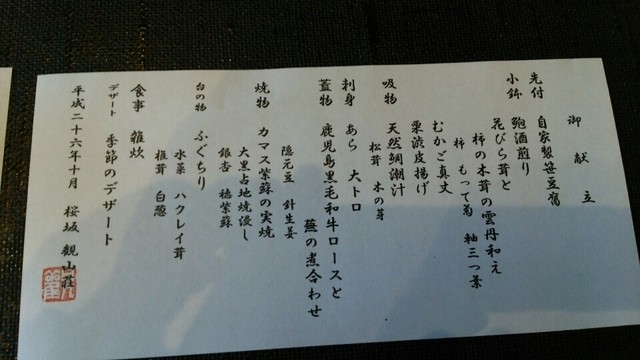 御献立
先付 自家製笹豆腐
小鉢 鮑酒煎り
花びら茸と
柿の木茸の雲丹和え
柿 もって菊 軸三つ葉
むかご真丈
栗渋皮揚げ
吸物 天然鯛潮汁
松茸 木の芽
刺身 あら 大トロ
蓋物 鹿児島黒毛和牛ロースと
蕪の煮合わせ
隠元豆 針生姜
焼物 カマス紫蘇の実焼
大黒占地焼浸し
銀杏 穂紫蘇
台の物 ふぐちり
水菜 ハクレイ茸
椎茸 白葱
食事 雑炊
デザート 季節のデザート
平成二十六年十月 桜坂 観山荘